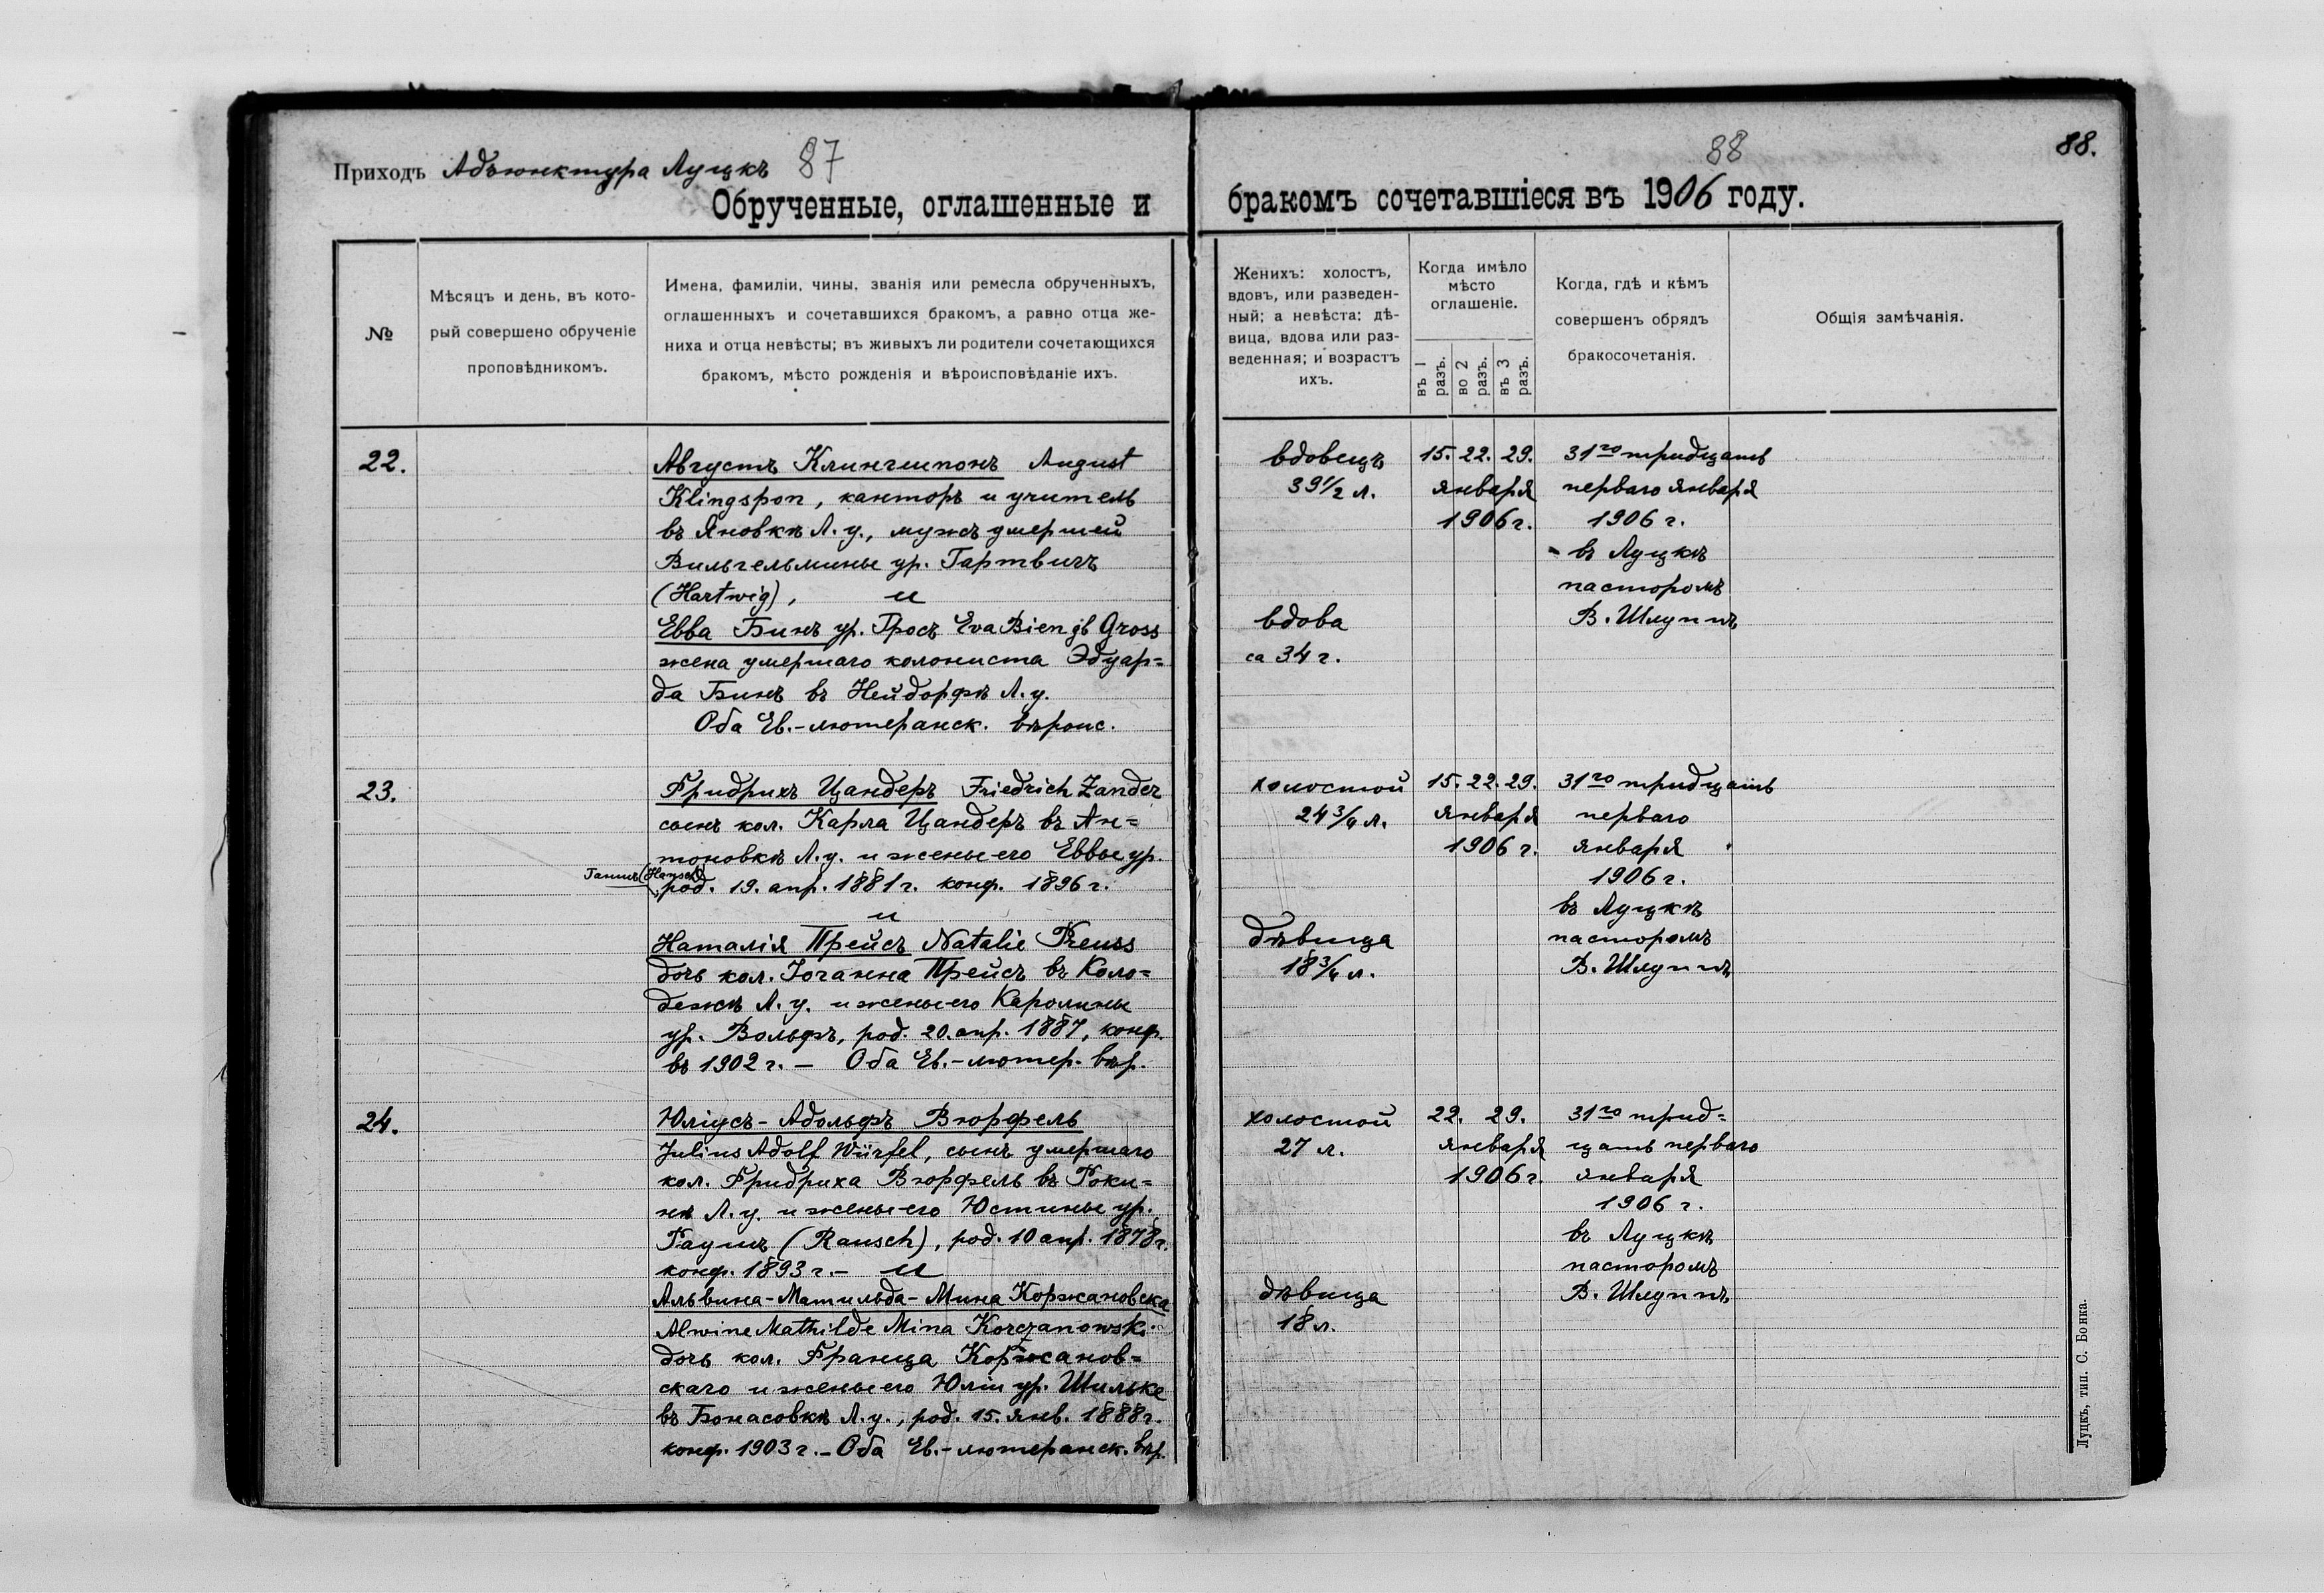 Приходъ Адъюнктура Луцкъ 87
Обрученные, оглашенные и
№
Мѣсяцъ и день, въ кото-
рый совершено обрученіе
проповѣдникомъ.
Имена, фамиліи, чины, званія или ремесла обрученныхъ,
оглашенныхъ и сочетавшихся бракомъ, а равно отца же-
ниха и отца невѣсты; въ живыхъ ли родители сочетающихся
бракомъ, мѣсто рожденія и вѣроисповѣданіе ихъ.
22.
Августъ Клингшпонъ August
Klingspon, канторъ и учитель
въ Яновкѣ Л. у., мужъ умершей
Вильгельмины ур. Гартвигъ
(Hartwig), и
Евва Бинъ ур. Гросъ Eva Bien gb Gross
жена умершаго колониста Эдуар=
да Бинъ въ Нейдорфѣ Л. у.
Оба Ев.-лютеранск. вѣроис.
23.
Фридрихъ Цандеръ Friedrich Zander
сынъ кол. Карла Цандеръ въ Ан=
тоновкѣ Л. у. и жены его Еввы ур.
род. 19. апр. 1881 г. конф. 1896 г.
и
Наталія Прейсъ Natalie Preuss
дочь кол. Іоганна Прейсъ въ Коло=
дежѣ Л. у. и жены его Каролины
ур. Вольфъ, род. 20. апр. 1887, конф.
въ 1902 г. — Оба Ев.-лютер. вѣр.
24.
Юліусъ-Адольфъ Вюрфель
Julius Adolf Würfel, сынъ умершаго
кол. Фридриха Вюрфель въ Роки=
нѣ Л. у. и жены его Юстины ур.
Раушъ (Rausch), род. 10 апр. 1878 г.
конф. 1893 г. — и
Альвина-Матильда-Мина Коржановска
Alwine Mathilde Mina Korczanowski
дочь кол. Франца Коржанов=
скаго и жены его Юліи ур. Шильке
въ Бонасовкѣ Л. у., род. 15. янв. 1888 г.
конф. 1903 г. — Оба Ев.-лютеранск. вѣр.
88 88.
бракомъ сочетавшіеся въ 1906 году.
Женихъ: холостъ,
вдовъ, или разведен-
ный; а невѣста: дѣ-
вица, вдова или раз-
веденная; и возрастъ
ихъ.
Когда имѣло
мѣсто
оглашеніе.
въ 1 разъ.
во 2 разъ.
въ 3 разъ.
Когда, гдѣ и кѣмъ
совершенъ обрядъ
бракосочетанія.
Общія замѣчанія.
вдовецъ
39½ л.
вдова
ca 34 г.
15. 22. 29.
января
1906 г.
31го тридцать
перваго января
1906 г.
въ Луцкѣ
пасторомъ
В. Шлуппъ
холостой
24¾ л.
дѣвица
18¾ л.
15. 22. 29.
января
1906 г.
31го тридцать
перваго
января
1906 г.
въ Луцкѣ
пасторомъ
В. Шлуппъ
холостой
27 л.
дѣвица
18 л.
22. 29.
января
1906 г.
31го трид=
цать перваго
января
1906 г.
въ Луцкѣ
пасторомъ
В. Шлуппъ
Луцкъ, тип. С. Бонка.